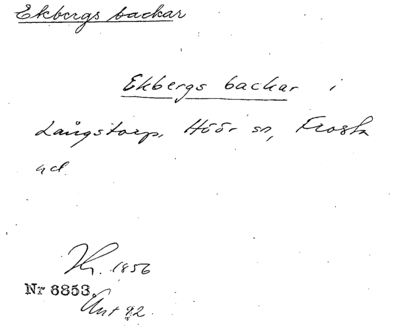 Ekbergs backar
Ekbergs backar i
Långstorp, Höör sn, Frosta
hd.
1856
Nr 6853.
Ant 92.